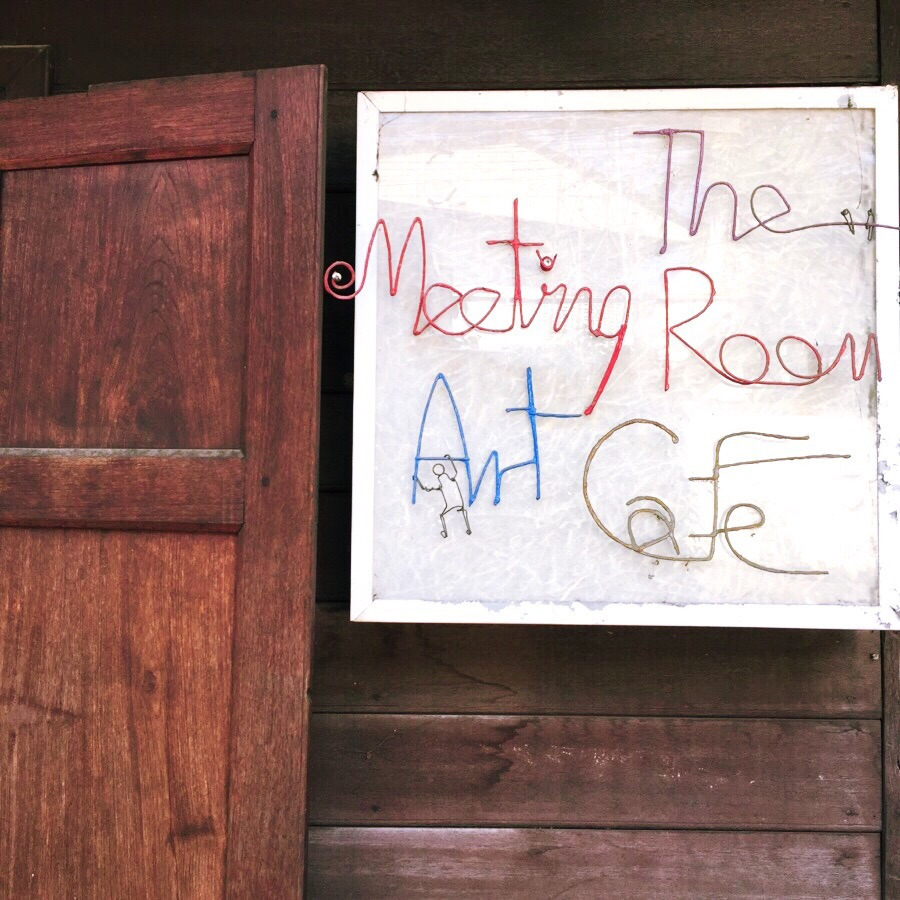 The
Meeting Room
Art Cafe